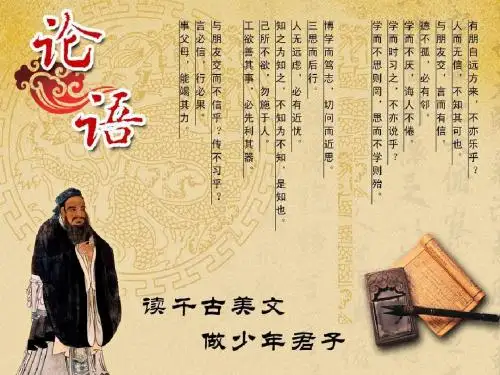 论语
有朋自远方来，不亦乐乎？
人而无信，不知其可也。
与朋友交，言而有信。
德不孤，必有邻。
学而不厌，诲人不倦。
学而时习之，不亦说乎？
学而不思则罔，思而不学则殆。
博学而笃志，切问而近思。
三思而后行。
人无远虑，必有近忧。
知之为知之，不知为不知，是知也。
己所不欲，勿施于人。
工欲善其事，必先利其器。
与朋友交而不信乎？传不习乎？
言必信，行必果。
事父母，能竭其力。
读千古美文
做少年君子